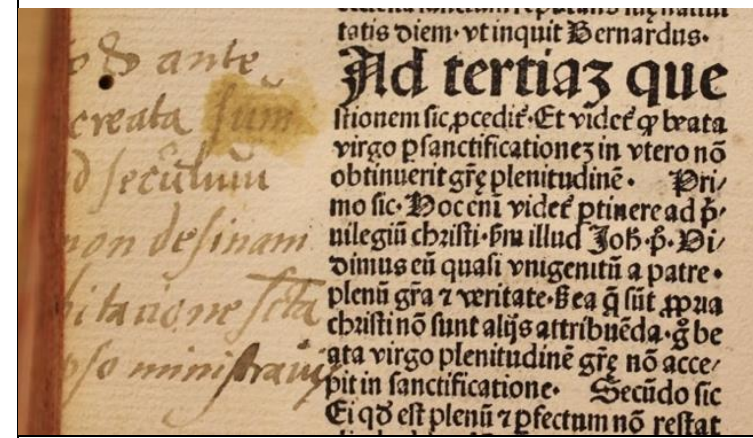 o qđ ante
creata sum
d seculum
non desinam
bitatione sctā
pso ministravi
tatis diem· vt inquit Bernardus·
Ad tertiaꝫ que
stionem sic ꝓcedit᷑· Et videt᷑ ꝙ beata
virgo ꝑ sanctificationeꝫ in vtero nō
obtinuerit grę̄ plenitudinē· Pri/
mo sic· Hoc eni᷑ videt᷑ ꝑtinere ad p̄·
uilegiū christi· ẜm illud Joh̄· p̄· Vi/
dimus eū quasi vnigenitū a patre·
plenū gr̄a ⁊ veritate· ẞ ea q̄ sūt ꝓpria
christi nō sunt alijs attribuēda· g̊ be
ata virgo plenitudinē grę̄ nō acce/
pit in sanctificatione· Secūdo sic
Ei qđ est plenū ⁊ ꝑfectum nō restat